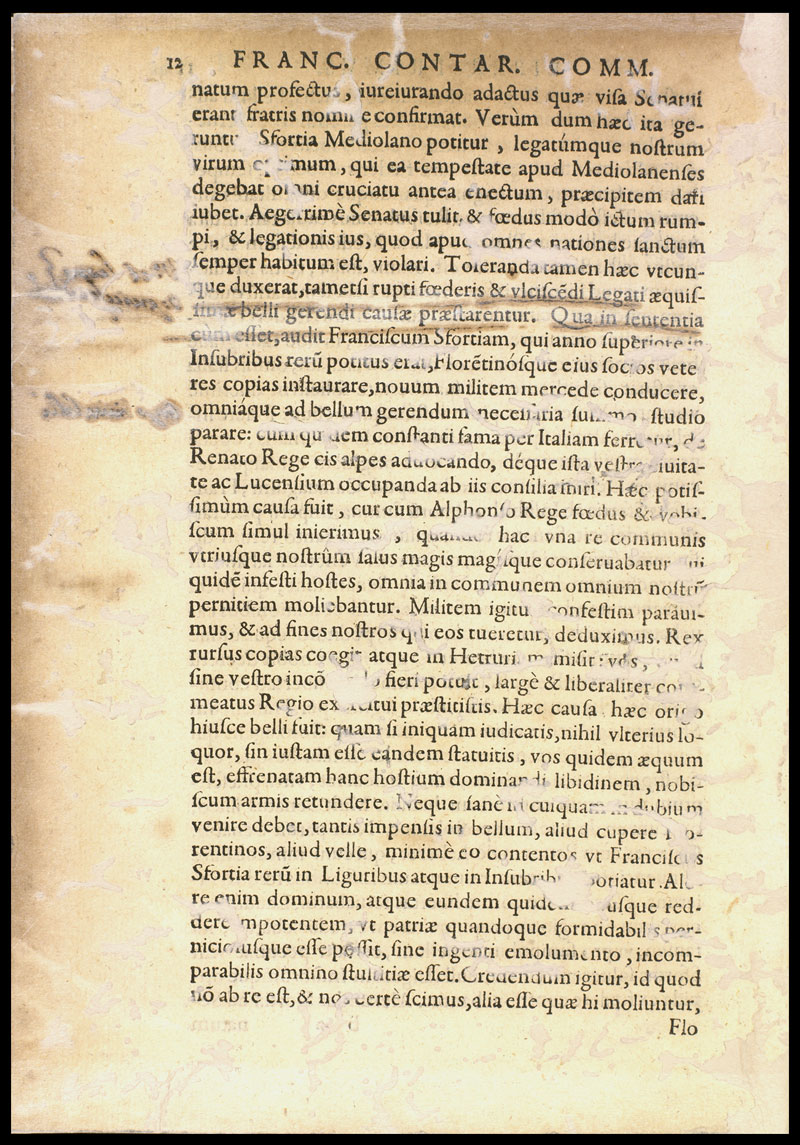 12 FRANC. CONTAR. COMM.
natum profectus, iureiurando adactus quæ visa Senatui
erant fratris nomine confirmat. Verùm dum hæc ita ge-
runtur Sfortia Mediolano potitur, legatúmque nostrum
virum optimum, qui ea tempestate apud Mediolanenses
degebat omni cruciatu antea enectum, præcipitem dari
iubet. Aegerrimè Senatus tulit, & fœdus modò ictum rum-
pi, & legationis ius, quod apud omnes nationes sanctum
semper habitum est, violari. Toleranda tamen hæc vtcun-
que duxerat, tametsi rupti fœderis & vlciscẽdi Legati æquis-
simæ belli gerendi causæ præstarentur. Qua in sententia
cum esset, audit Franciscum Sfortiam, qui anno superiore in
Insubribus rerũ potitus erat, Florẽtinósque eius socios vete
res copias instaurare, nouum militem mercede conducere,
omniáque ad bellum gerendum necessaria summo studio
parare: cum quidem constanti fama per Italiam ferretur, de
Renato Rege cis alpes aduocando, déque ista vestra ciuita-
te ac Lucensium occupanda ab iis consilia iniri. Hæc potis-
simùm causa fuit, cur cum Alphonso Rege fœdus & vobi-
scum simul inierimus, quando hac vna re communis
vtriusque nostrûm salus magis magisque conseruabatur
quidẽ infesti hostes, omnia in communem omnium nostrũ
pernitiem moliebantur. Militem igitur confestim paraui-
mus, & ad fines nostros qui eos tueretur, deduximus. Rex
rursus copias coegit atque in Hetruriam misit:
sine vestro incõmodo fieri potuit, largè & liberaliter com-
meatus Regio exercitui præstitistis. Hæc causa hæc origo
hiusce belli fuit: quam si iniquam iudicatis, nihil vlterius lo-
quor, sin iustam esse eandem statuitis, vos quidem æquum
est, effrenatam hanc hostium dominandi libidinem, nobi-
scum armis retundere. Neque sanè in cuiquam in dubium
venire debet, tantis impensis in bellum, aliud cupere Flo-
rentinos, aliud velle, minimè eo contentos vt Franciscus
Sfortia rerũ in Liguribus atque in Insubribus potiatur.
re enim dominum, atque eundem quidem usque red-
dere impotentem, vt patriæ quandoque formidabilis per-
niciosusque esse possit, sine ingenti emolumento, incom-
parabilis omnino stultitiæ esset. Credendum igitur, id quod
nõ ab re est, & nos certè scimus, alia esse quæ hi moliuntur,
Flo